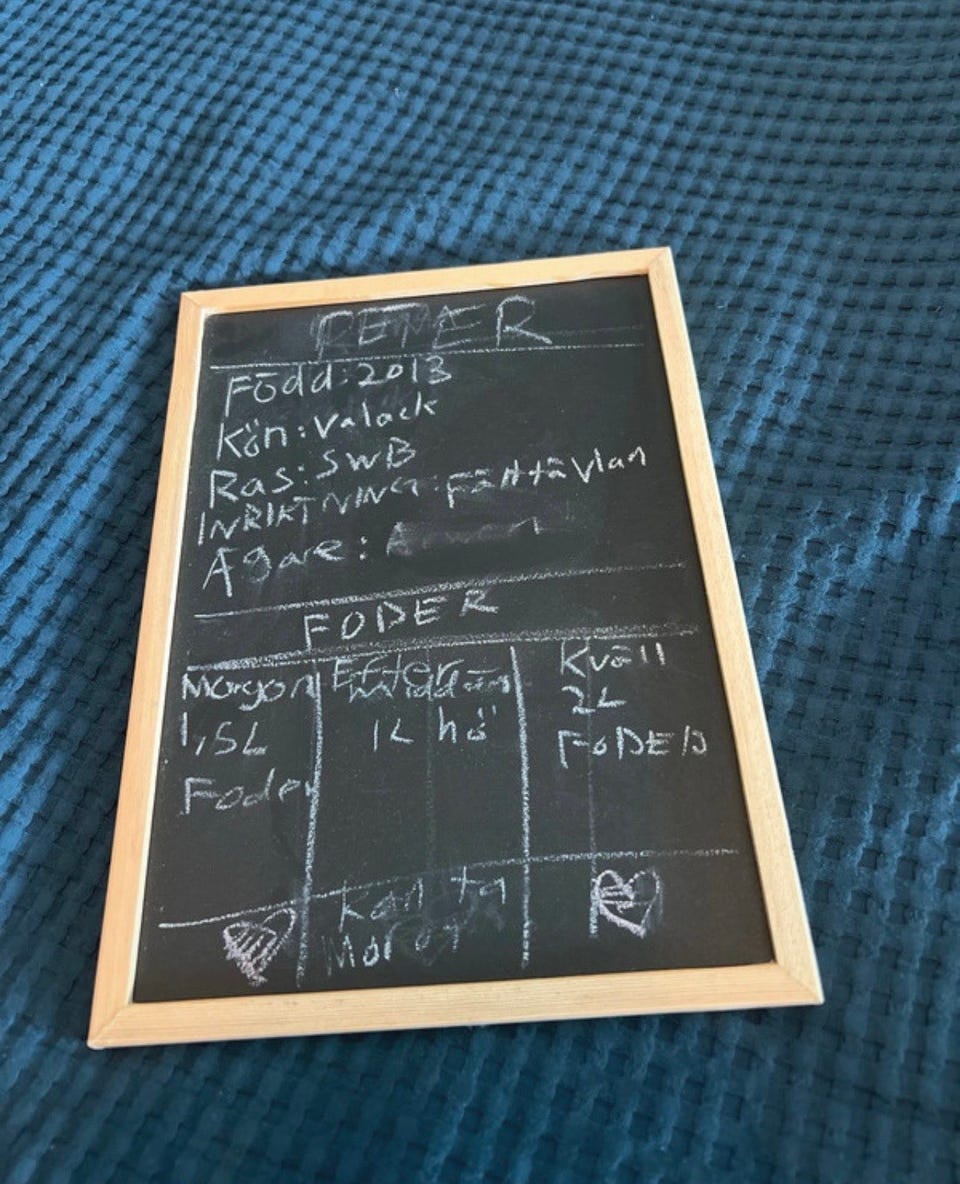 Född: 2013
Kön: valack
Ras: SWB
INRIKTNING: Fälttävlan
Ägare:
FODER
Morgon
1,5L
Foder
Efter
1L hö
Kväll
2L
FODER
kan ta